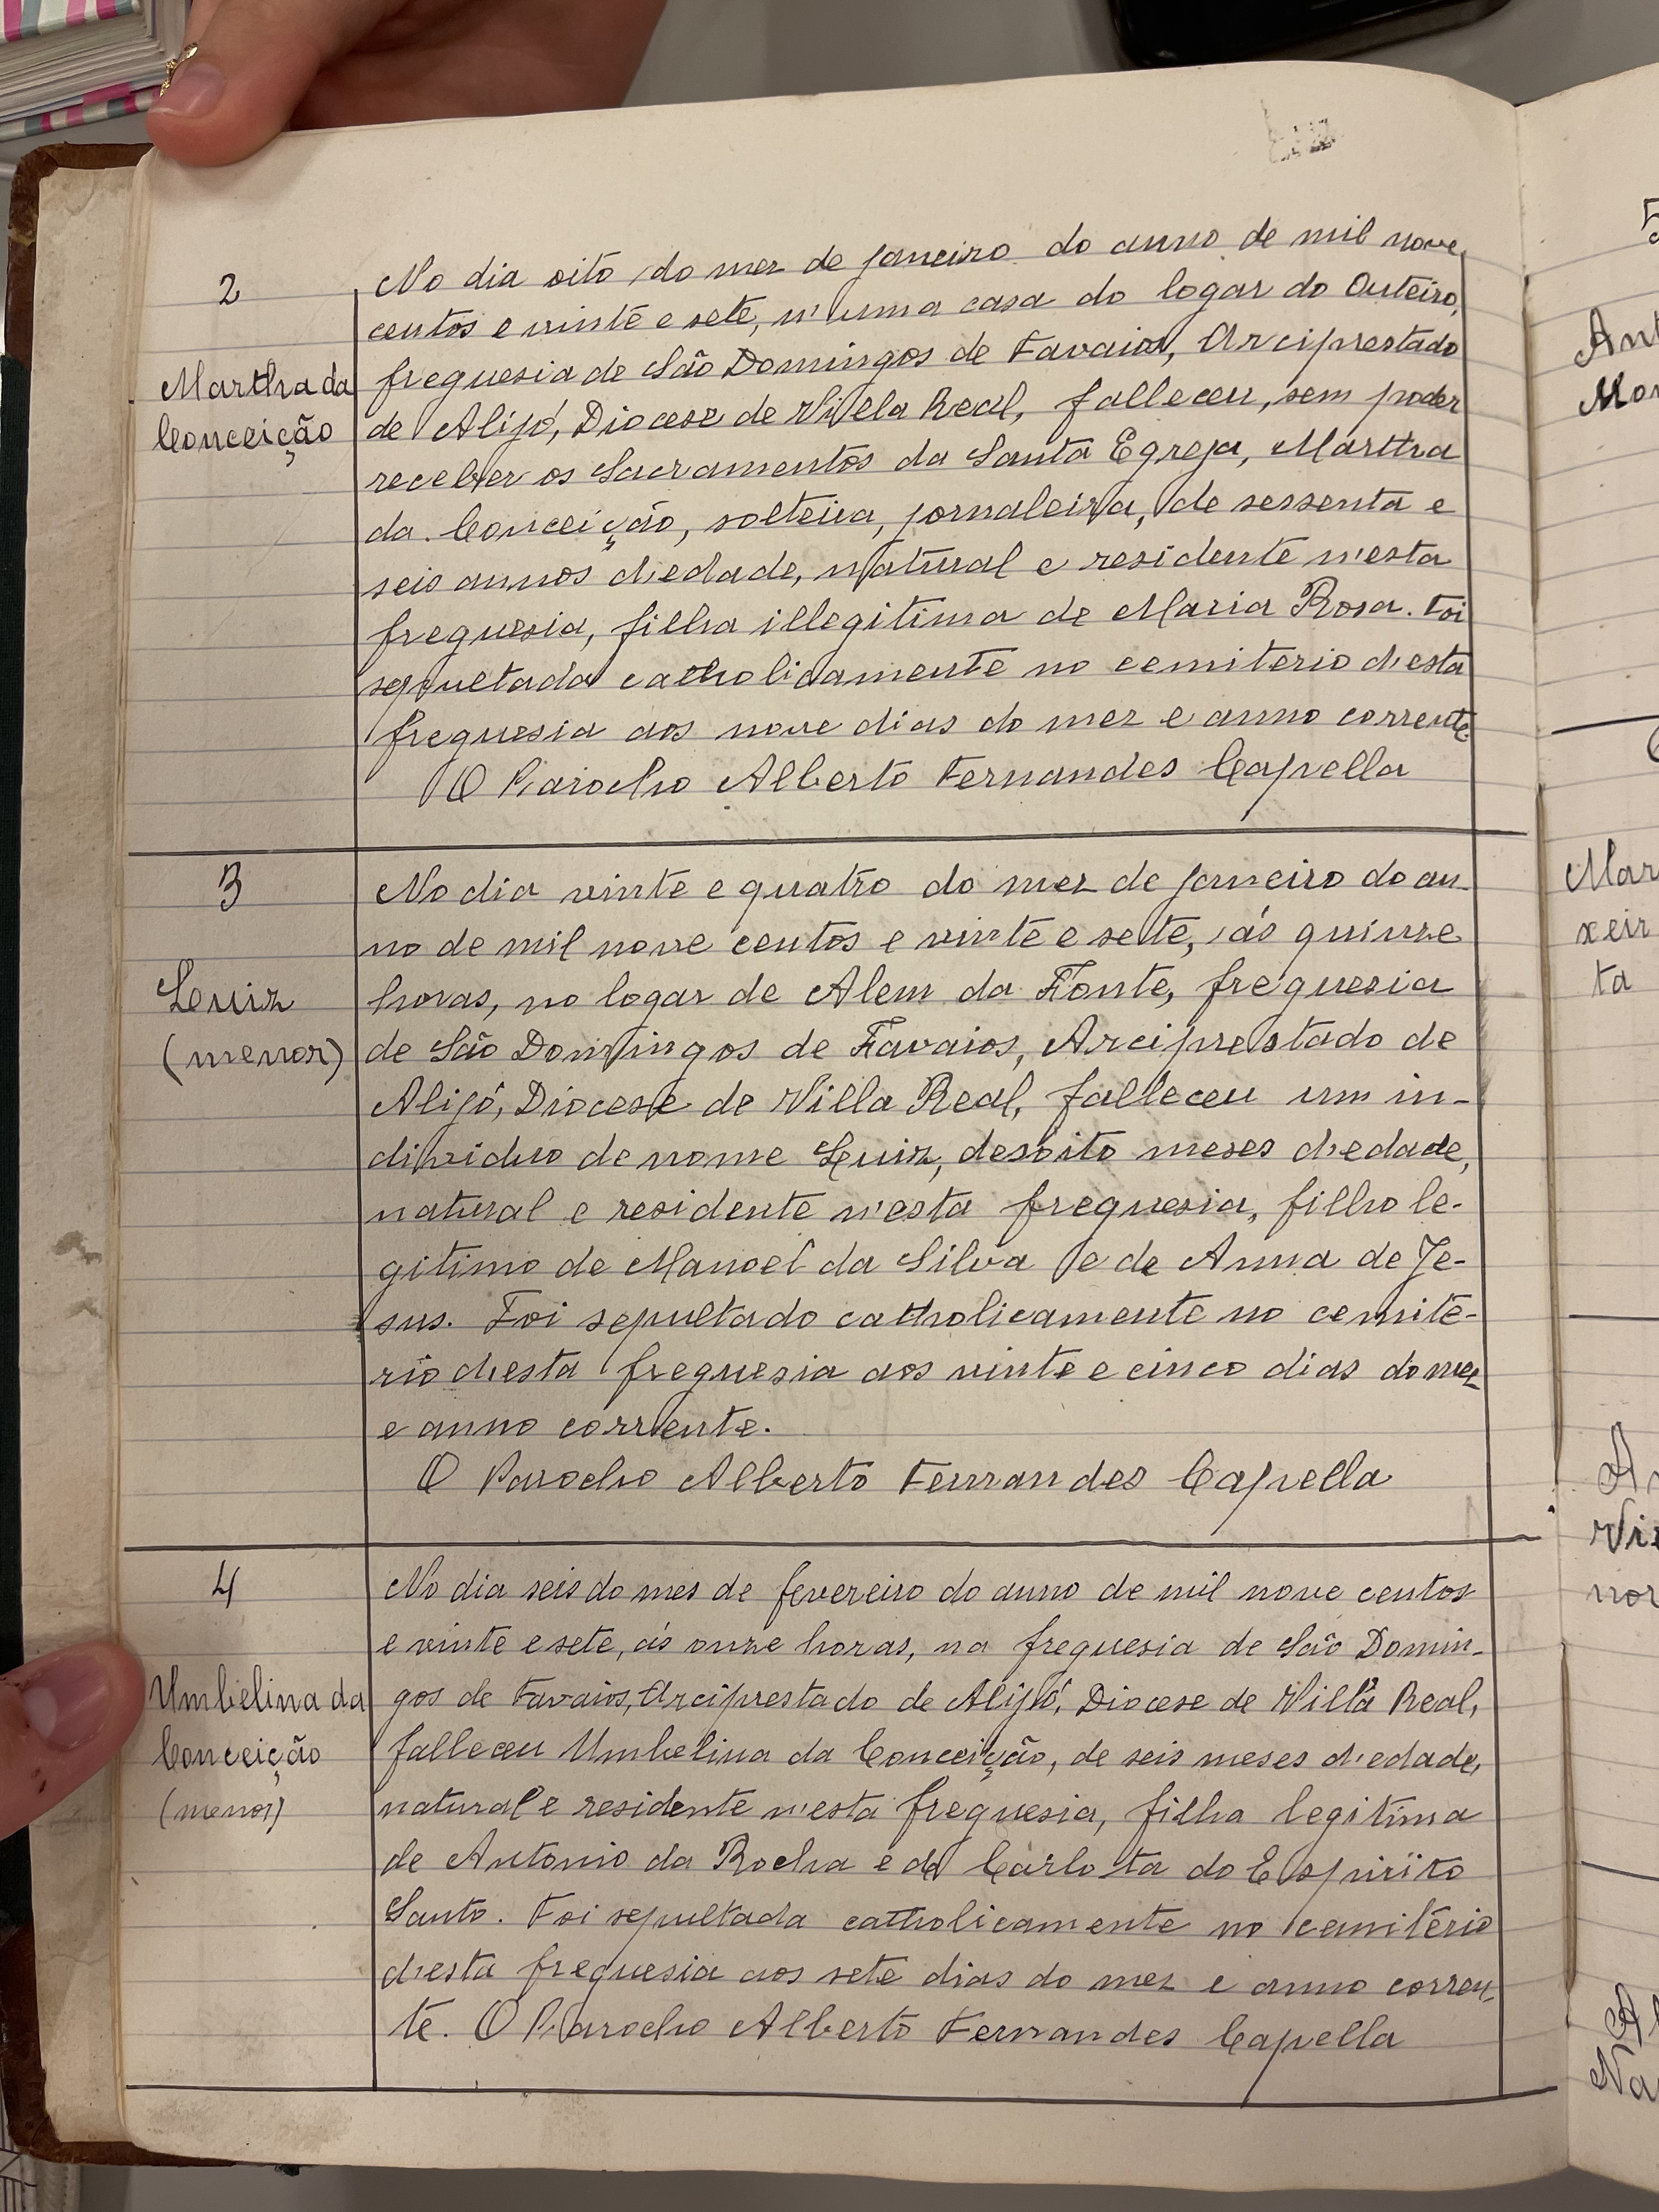 2
Martha da
Conceição
No dia oito do mez de janeiro do anno de mil nove
centos e vinte e sete, n'uma casa do logar do Outeiro,
freguesia de São Domingos de Favaios, Arciprestado
de Alijó, Diocese de Villa Real, falleceu, sem poder
receber os Sacramentos da Santa Egreja, Martha
da Conceição, solteira, jornaleira, de sessenta e
seis annos d'edade, natural e residente n'esta
freguesia, filha illegitima de Maria Rosa. Foi
sepultada catholicamente no cemiterio d'esta
freguesia aos nove dias do mez e anno corrente.
O Parocho Alberto Fernandes Capella
3
Luiz
(menor)
No dia vinte e quatro do mez de janeiro do an-
no de mil nove centos e vinte e sete, ás quinze
horas, no logar de Alem da Fonte, freguesia
de São Domingos de Favaios, Arciprestado de
Alijó, Diocese de Villa Real, falleceu um in-
dividuo de nome Luiz, desoito meses d'edade,
natural e residente n'esta freguesia, filho le-
gitimo de Manoel da Silva e de Anna de Je-
sus. Foi sepultado catholicamente no cemite-
rio d'esta freguesia aos vinte e cinco dias do mez
e anno corrente.
O Parocho Alberto Fernandes Capella
4
Umbelina da
Conceição
(menor)
No dia seis do mes de fevereiro do anno de mil nove centos
e vinte e sete, ás onze horas, na freguesia de São Domin-
gos de Favaios, Arciprestado de Alijó, Diocese de Villa Real,
falleceu Umbelina da Conceição, de seis meses d'edade,
natural e residente n'esta freguesia, filha legitima
de Antonio da Rocha e de Carlota do Espirito
Santo. Foi sepultada catholicamente no cemitério
d'esta freguesia aos sete dias do mez e anno corren-
te. O Parocho Alberto Fernandes Capella
5
Ant
Mar
xeir
ta
Vi
nor
Al
Na